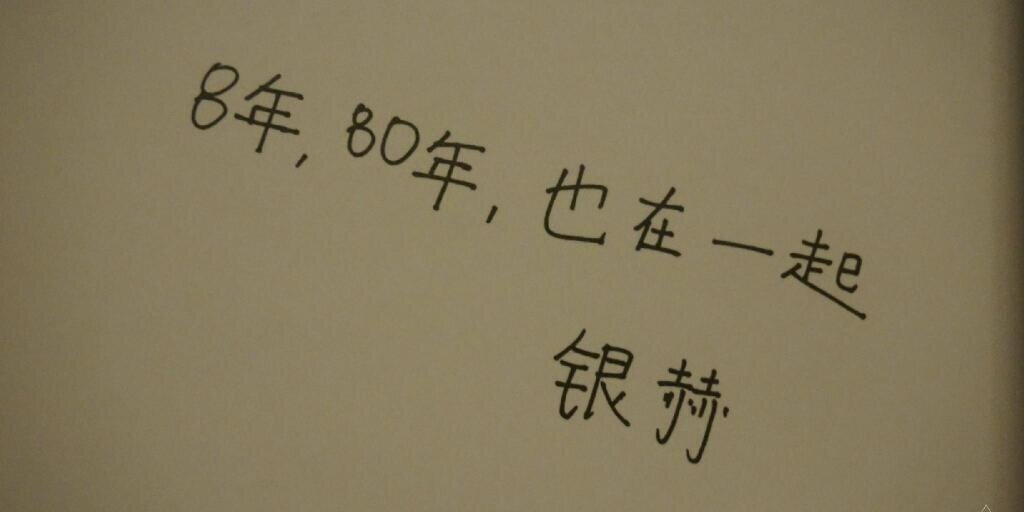 8年, 80年, 也在一起
银赫